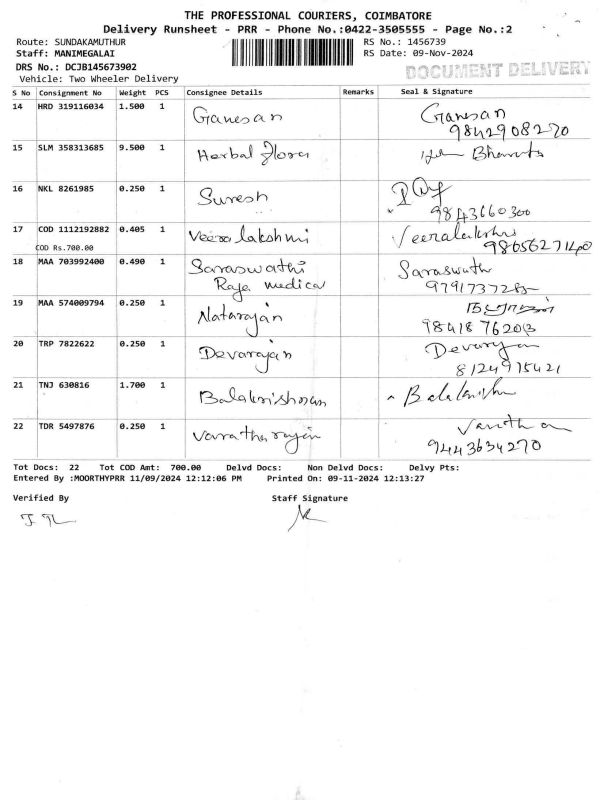 THE PROFESSIONAL COURIERS, COIMBATORE
Delivery Runsheet - PRR - Phone No.:0422-3505555 - Page No.:2
Route: SUNDAKAMUTHUR RS No.: 1456739
Staff: MANIMEGALAI RS Date: 09-Nov-2024
DRS No.: DCJB145673902 DOCUMENT DELIVERY
Vehicle: Two Wheeler Delivery
S No Consignment No Weight PCS Consignee Details Remarks Seal & Signature
14 HRD 319116034 1.500 1 Ganesan Ganesan
9842908270
15 SLM 358313685 9.500 1 Herbal Flora Bharath
16 NKL 8261985 0.250 1 Suresh
9843660300
17 COD 1112192882 0.405 1 Veera lakshmi Veeralakshmi
COD Rs.700.00 9865627140
18 MAA 703992400 0.490 1 Saraswathi Saraswath
Raja medical 9791737285
19 MAA 574009794 0.250 1 Natarajan நடராஜன்
20 TRP 7822622 0.250 1 Devarajan Devarajan
8124915421
21 TNJ 630816 1.700 1 Balakrishnan Balakrishn
22 TDR 5497876 0.250 1 Varatharajan Vanitha
9443634270
Tot Docs: 22 Tot COD Amt: 700.00 Delvd Docs: Non Delvd Docs: Delvy Pts:
Entered By :MOORTHYPRR 11/09/2024 12:12:06 PM Printed On: 09-11-2024 12:13:27
Verified By Staff Signature